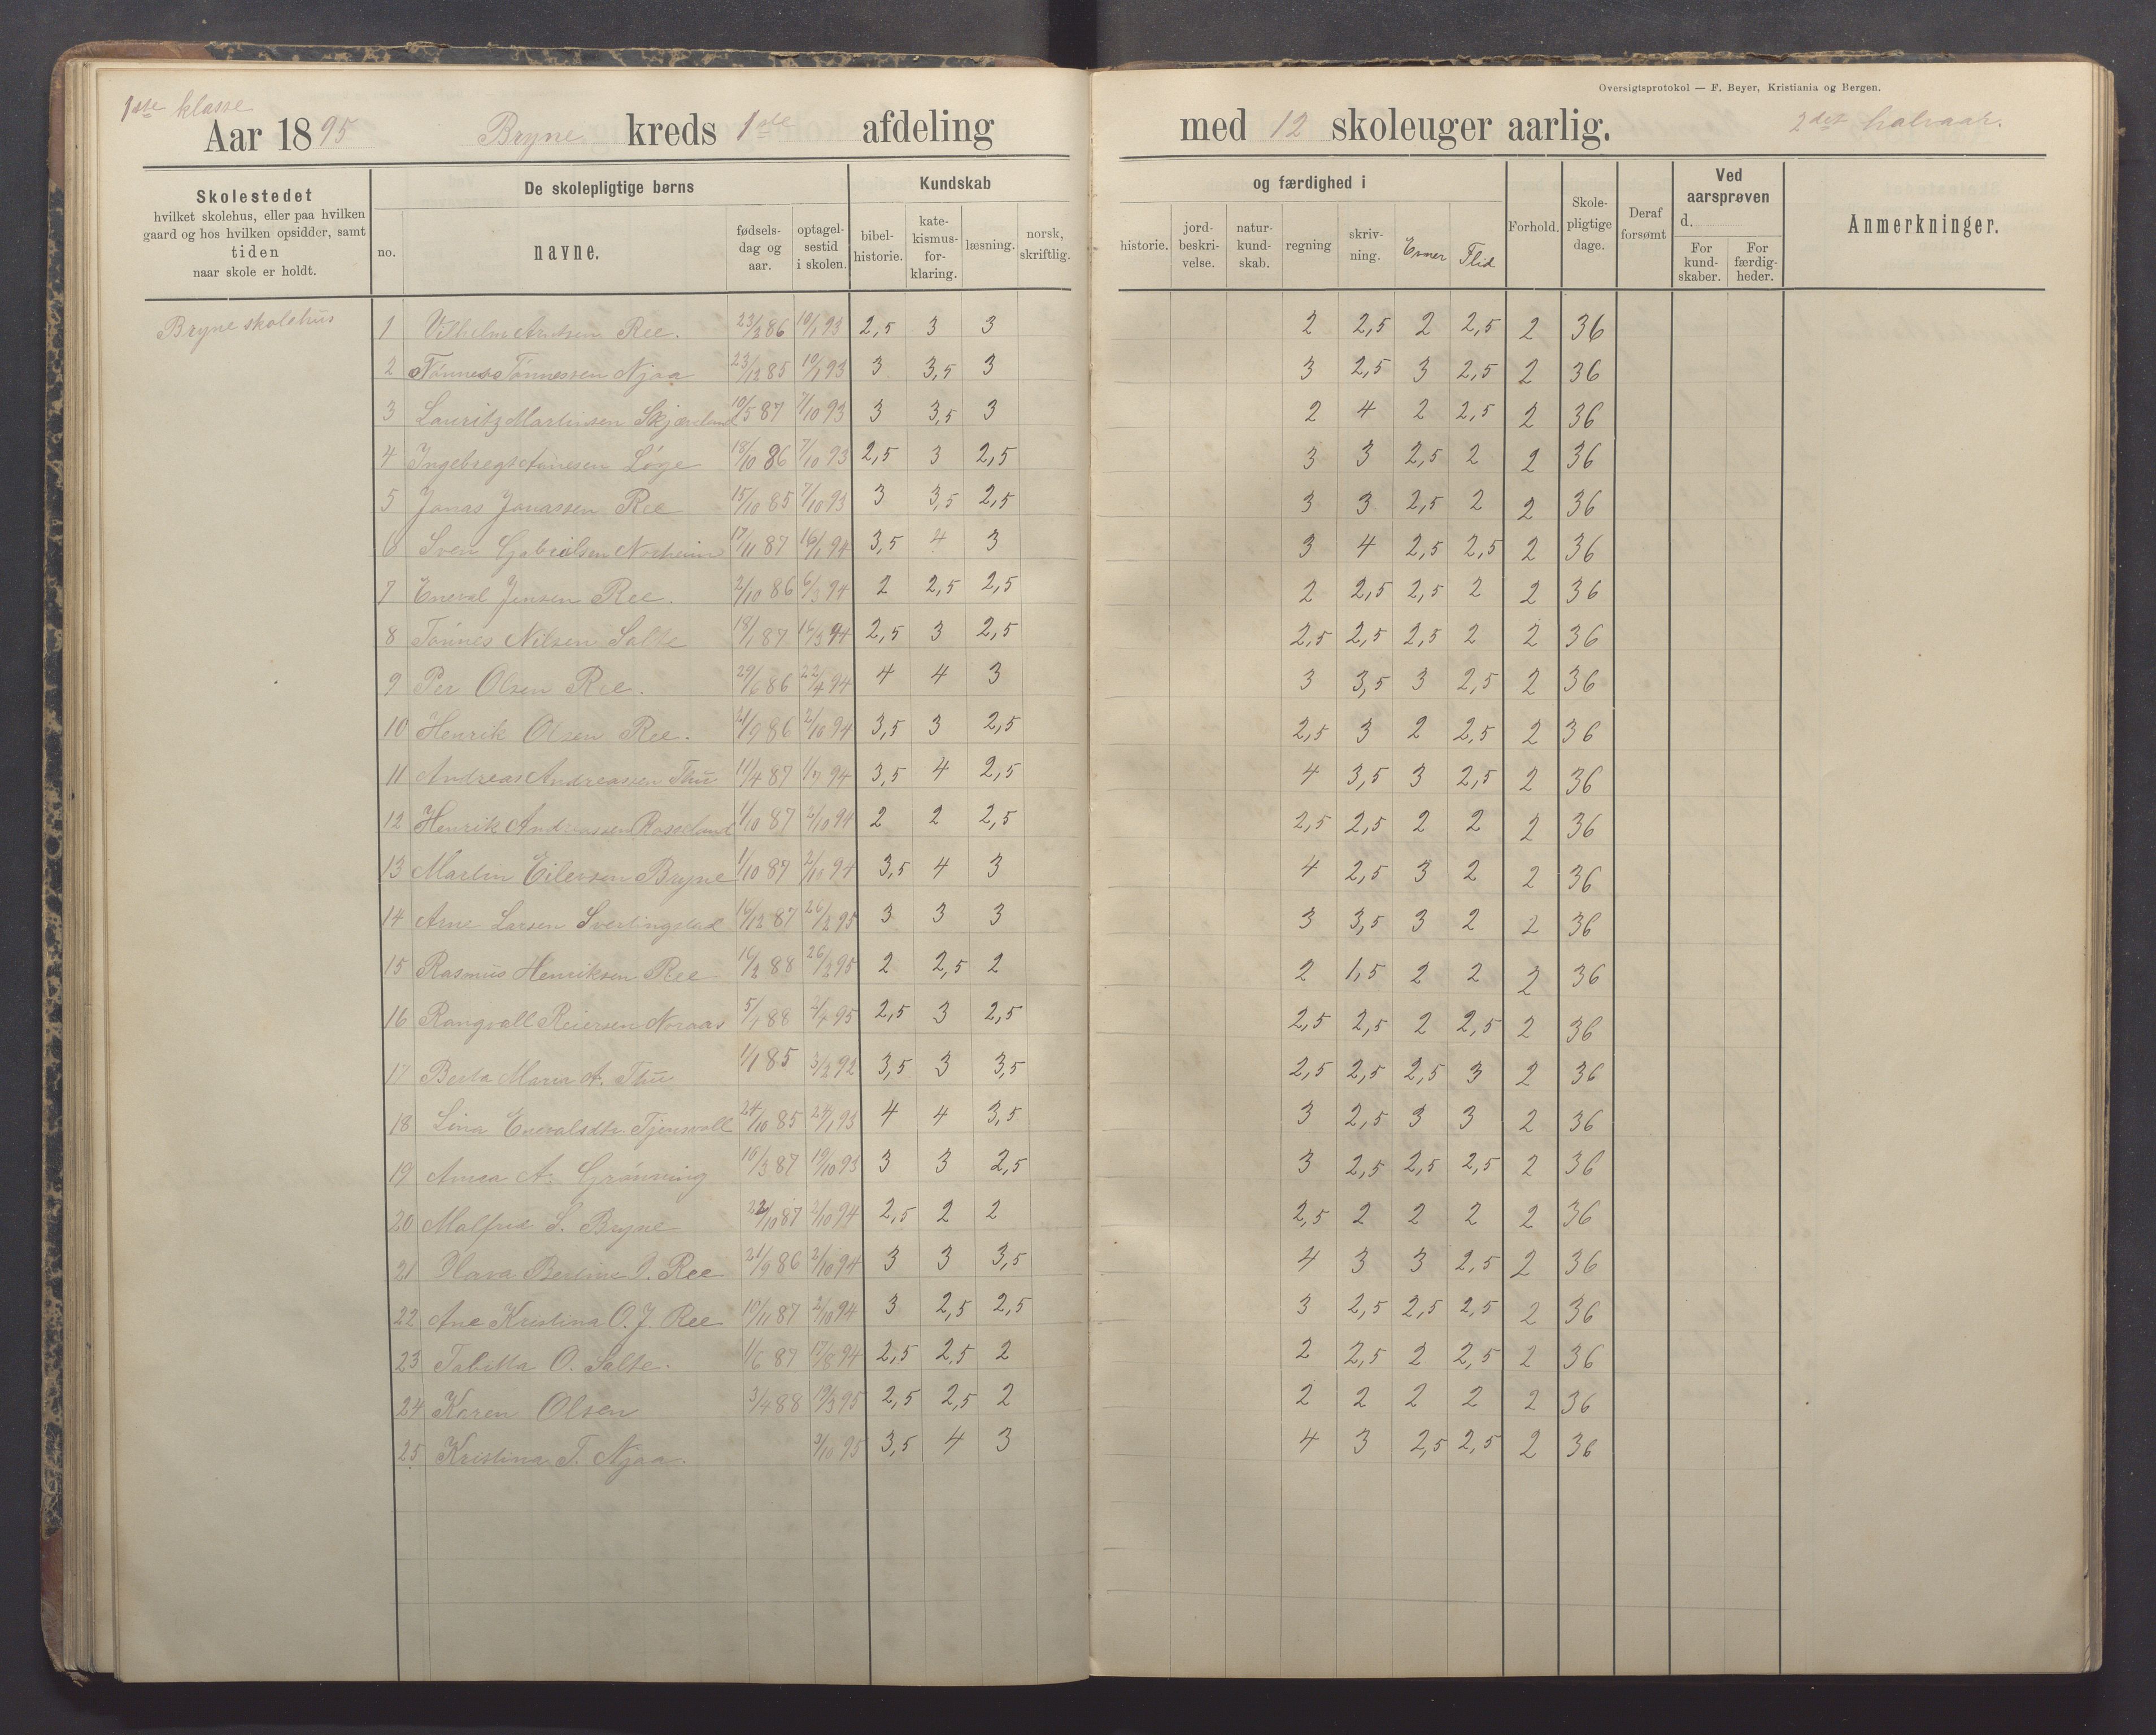 1ste klasse
Oversigtsprotokol — F. Beyer, Kristiania og Bergen.
Aar 1895 Bryne kreds 1ste afdeling med 12 skoleuger aarlig. 2det halvaar.
Skolestedet hvilket skolehus, eller paa hvilken gaard og hos hvilken opsidder, samt tiden naar skole er holdt.
De skolepligtige børns
no. navne. fødselsdag og aar. optagelsestid i skolen.
Kundskab og færdighed i
bibelhistorie. katekismusforklaring. læsning. norsk, skriftlig. historie. jordbeskrivelse. naturkundskab. regning skrivning. Evner Flid
Forhold. Skolepligtige dage. Deraf forsømt
Ved aarsprøven d.
For kundskaber. For færdigheder.
Anmerkninger.
Bryne skolehus
1 Vilhelm Ree. 23/3 86 10/1 93 2,5 3 3 2 2,5 2 2,5 2 36
2 Tönnes Tönnessen Njaa 23/12 85 10/1 93 3 3,5 3 3 2,5 3 2,5 2 36
3 Lauritz Martinsen 10/5 87 7/10 93 3 3,5 3 2 4 2 2,5 2 36
4 18/10 86 7/10 93 2,5 3 2,5 3 3 2,5 2 2 36
5 Jonas Jonassen Ree 15/10 85 7/10 93 3 3,5 2,5 3 3 2,5 2 2 36
6 Sven Gabrielsen Norheim 17/11 87 16/1 94 3,5 4 3 3 4 2,5 2,5 2 36
7 Eneval Jensen Ree. 2/10 86 6/3 94 2 2,5 2,5 2 2,5 2,5 2 2 36
8 Tönnes Nilsen Salte 18/1 87 16/3 94 2,5 3 2,5 2,5 2,5 2,5 2 2 36
9 Per Olsen Ree. 29/6 86 22/4 94 4 4 3 3 3,5 3 2,5 2 36
10 Henrik Olsen Ree. 21/9 86 2/10 94 3,5 3 2,5 2,5 3 2 2,5 2 36
11 Andreas Andreassen Thu 11/4 87 94 3,5 4 2,5 4 3,5 3 2,5 2 36
12 Henrik Andreassen Roseland 1/10 87 2/10 94 2 2 2,5 2,5 2,5 2 2 2 36
13 Martin Eilersen Bryne 1/10 87 2/10 94 3,5 4 3 4 2,5 3 2 2 36
14 Arne Larsen Sverlingstad 16/12 87 26/2 95 3 3 3 3 3,5 3 2 2 36
15 Rasmus Henriksen Ree 16/2 88 26/2 95 2 2,5 2 2 1,5 2 2 2 36
16 Rangvall Reiersen Noraas 5/1 88 95 2,5 3 2,5 2,5 2,5 2 2,5 2 36
17 Berta Maria A. Thu 1/1 85 3/2 92 3,5 3 3,5 2,5 2,5 2,5 3 2 36
18 Lina Enevalsdtr. Tjensvoll 24/10 85 24/1 93 4 4 3,5 3 2,5 3 3 2 36
19 A. Grönning 16/3 87 19/10 93 3 3 2,5 3 2,5 2,5 2,5 2 36
20 Malfrid S. Bryne 22/10 87 2/10 94 2,5 2 2 2,5 2 2 2 2 36
21 Berline Ree 21/9 86 2/10 94 3 3 3,5 4 3 3 2,5 2 36
22 Ane Kristina O. J. Ree 10/11 87 2/10 94 3 2,5 2,5 3 2,5 2,5 2,5 2 36
23 Tabitta O. Salte. 1/6 87 17/8 94 2,5 2,5 2 2 2,5 2 2,5 2 36
24 Karen Olsen 3/4 88 19/3 95 2,5 2,5 2 2 2 2 2 2 36
25 Kristina T. Njaa. 3/10 95 3,5 4 3 4 3 2,5 2,5 2 36